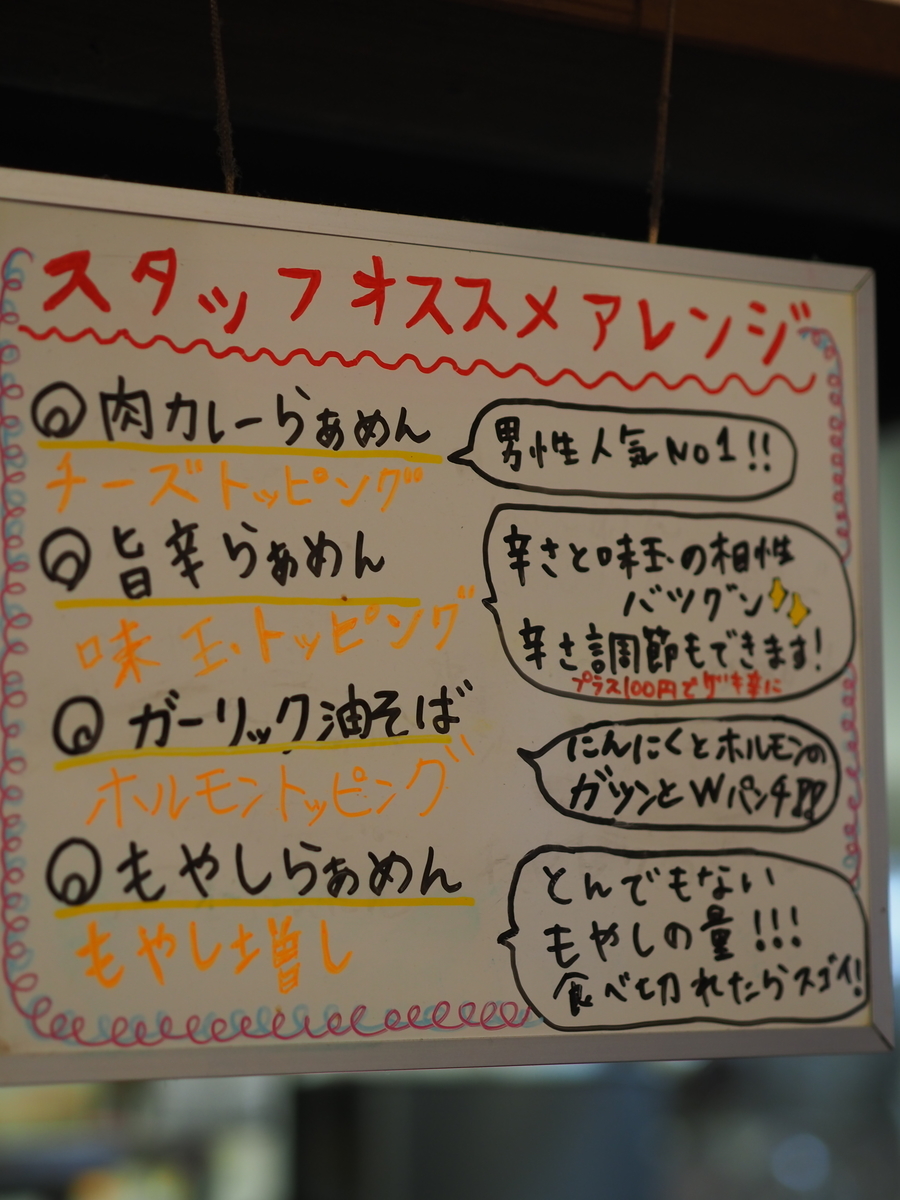 スタッフオススメアレンジ
肉カレーらぁめん
男性人気No1!!
チーズトッピング
旨辛らぁめん
辛さと味玉の相性
バツグン
味玉トッピング
辛さ調節もできます!
プラス100円でゲキ辛に
ガーリック油そば
にんにくとホルモンの
ガツンとWパンチ!!
ホルモントッピング
もやしらぁめん
とんでもない
もやしの量!!!
食べ切れたらスゴイ!
もやし増し